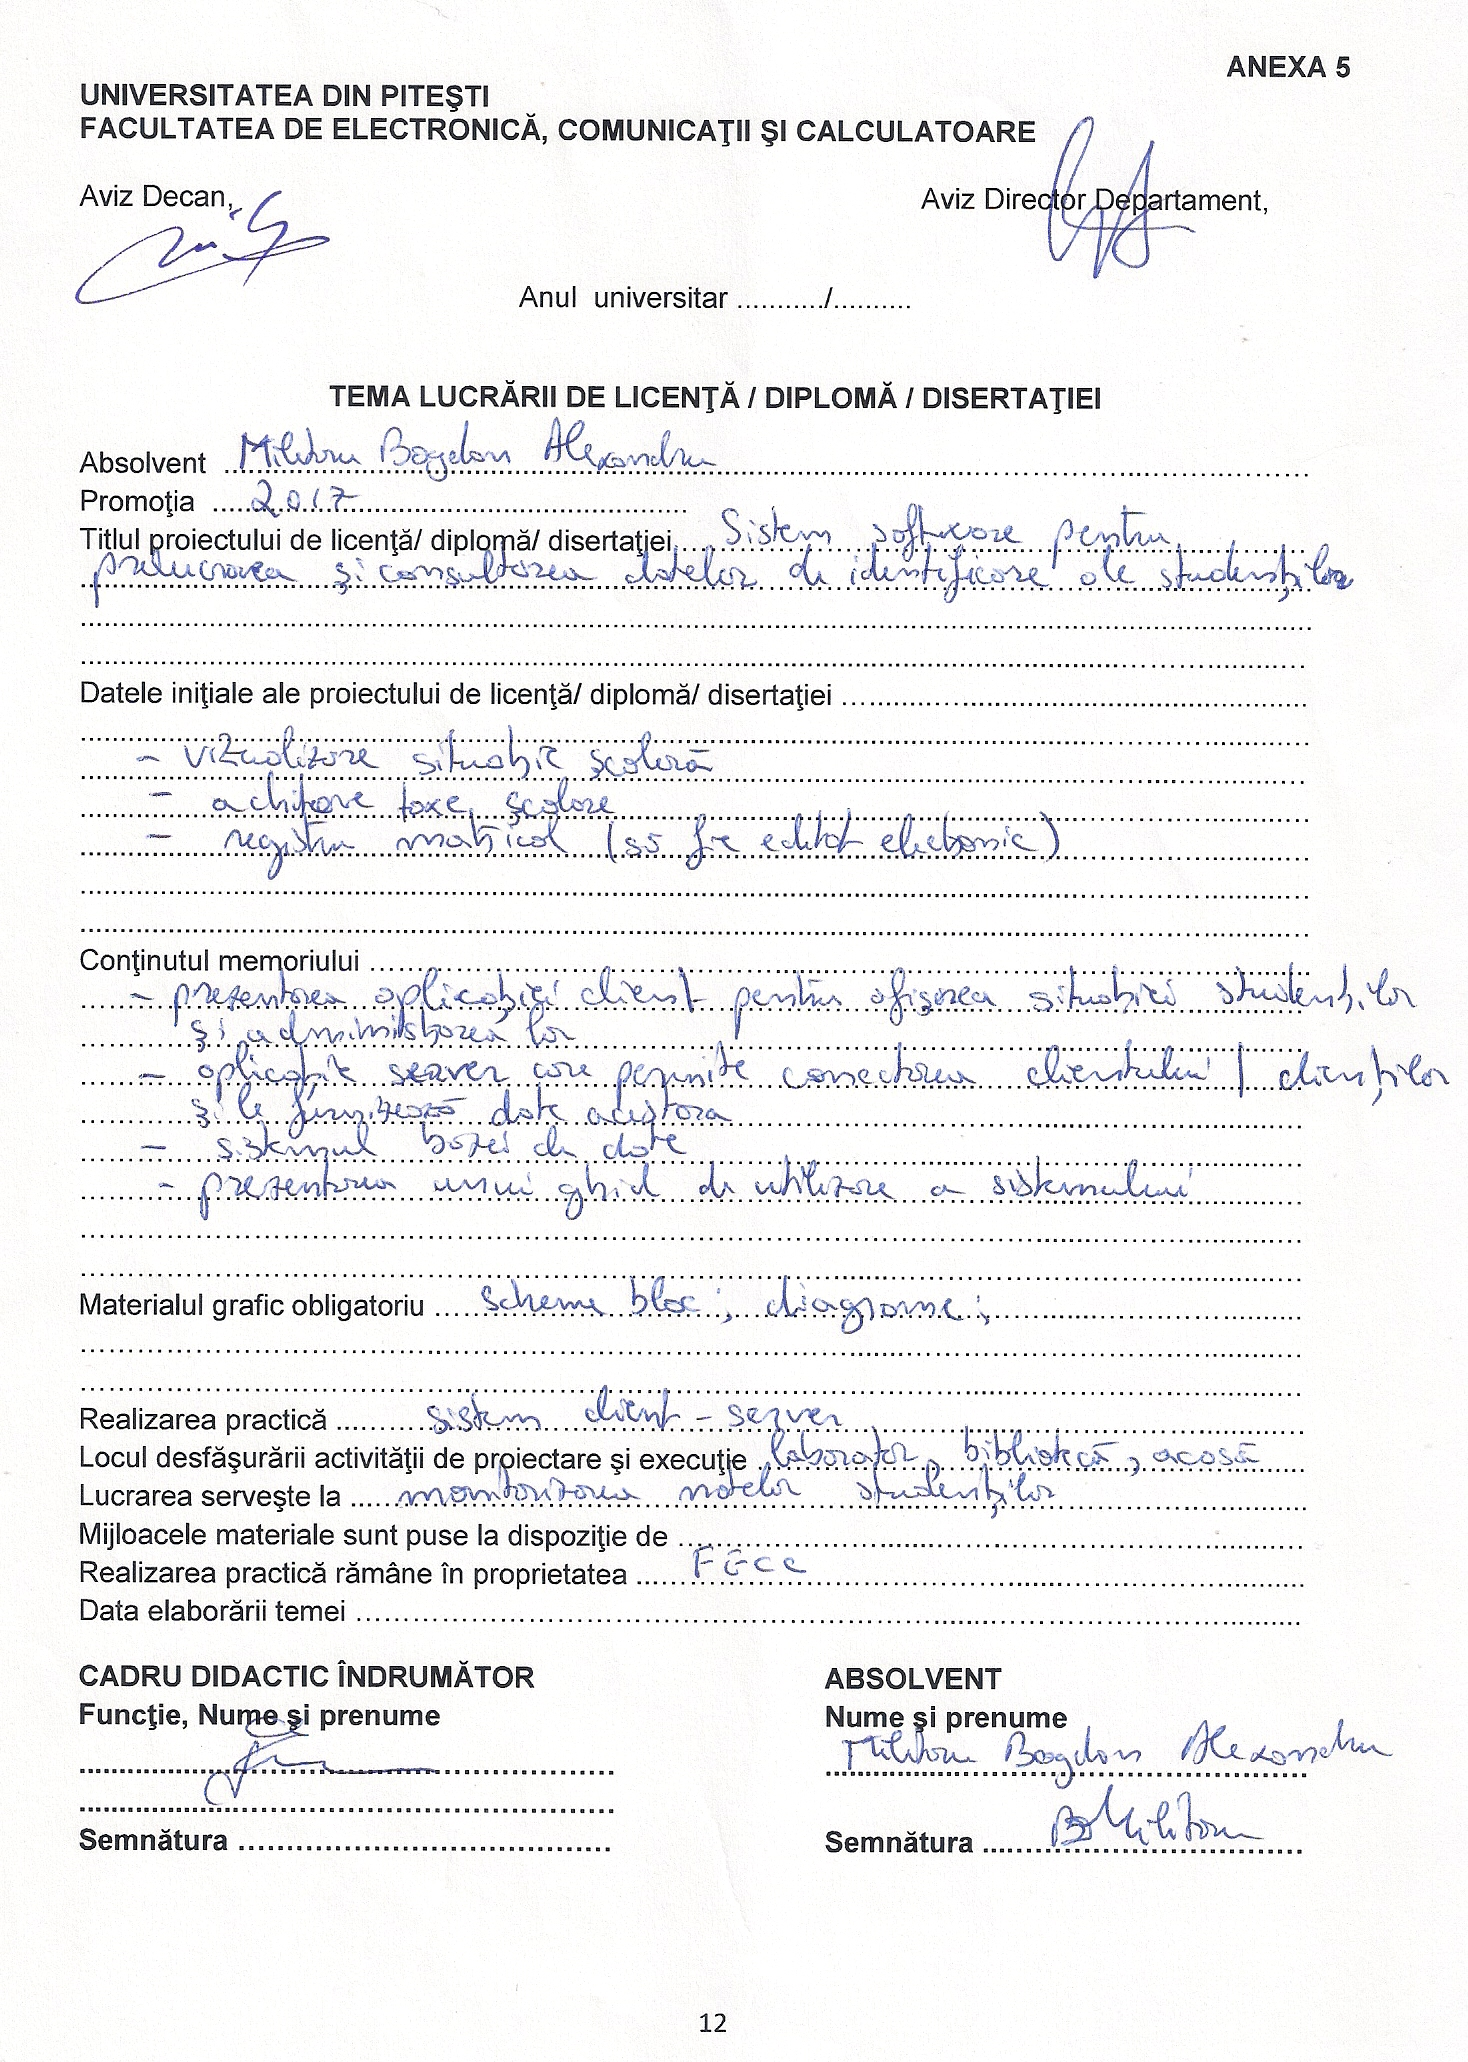 ANEXA 5
UNIVERSITATEA DIN PITEŞTI
FACULTATEA DE ELECTRONICĂ, COMUNICAŢII ŞI CALCULATOARE
Aviz Decan,
Aviz Director Departament,
Anul universitar .........../..........
TEMA LUCRĂRII DE LICENŢĂ / DIPLOMĂ / DISERTAŢIEI
Absolvent Militaru Bogdan Alexandru
Promoţia 2017
Titlul proiectului de licenţă/ diplomă/ disertaţiei Sistem software pentru
prelucrarea şi consultarea datelor de identificare ale studenţilor
Datele iniţiale ale proiectului de licenţă/ diplomă/ disertaţiei
- vizualizare situaţie şcolară
- achitare taxe şcolare
- registru matricol (să fie editat electronic)
Conţinutul memoriului
- prezentarea aplicaţiei client pentru afişarea situaţiei studenţilor
şi administrarea lor
- aplicaţie server care permite conectarea clientului / clienţilor
şi le furnizează date acestora
- sistemul bazei de date
- prezentarea unui ghid de utilizare a sistemului
Materialul grafic obligatoriu scheme bloc; diagrame;
Realizarea practică sistem client - server
Locul desfăşurării activităţii de proiectare şi execuţie laborator, bibliotecă, acasă
Lucrarea serveşte la monitorizarea notelor studenţilor
Mijloacele materiale sunt puse la dispoziţie de
Realizarea practică rămâne în proprietatea FECC
Data elaborării temei
CADRU DIDACTIC ÎNDRUMĂTOR
ABSOLVENT
Funcţie, Nume şi prenume
Nume şi prenume
Militaru Bogdan Alexandru
Semnătura
Semnătura BMilitaru
12